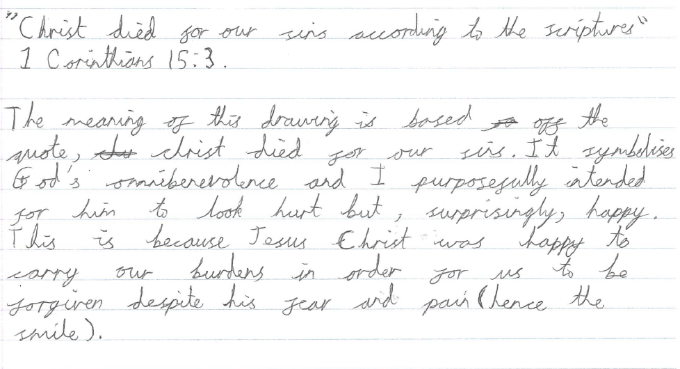 "Christ died for our sins according to the scriptures"
1 Corinthians 15:3.
The meaning of this drawing is based off the
quote, christ died for our sins. It symbolises
God's omnibenevolence and I purposefully intended
for him to look hurt but, surprisingly, happy.
This is because Jesus Christ was happy to
carry our burdens in order for us to be
forgiven despite his fear and pain (hence the
smile).